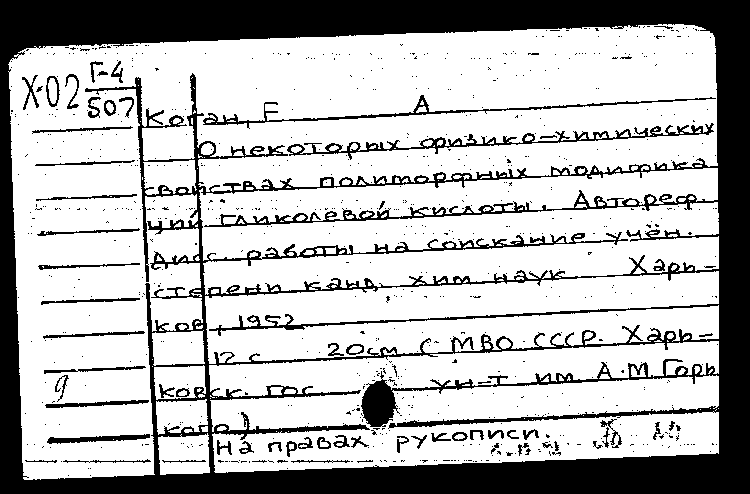 Х-02 Г-4
507
Коган, Е А
О некоторых физико-химических
свойствах полиморфных модифика
ций гликолевой кислоты. Автореф.
дисс. работы на соискание учён.
степени канд. хим наук Харь=
ков, 1952
12 с 20см (МВО СССР. Харь=
ковск. гос ун-т им А.М.Горь
кого).
9
На правах рукописи.